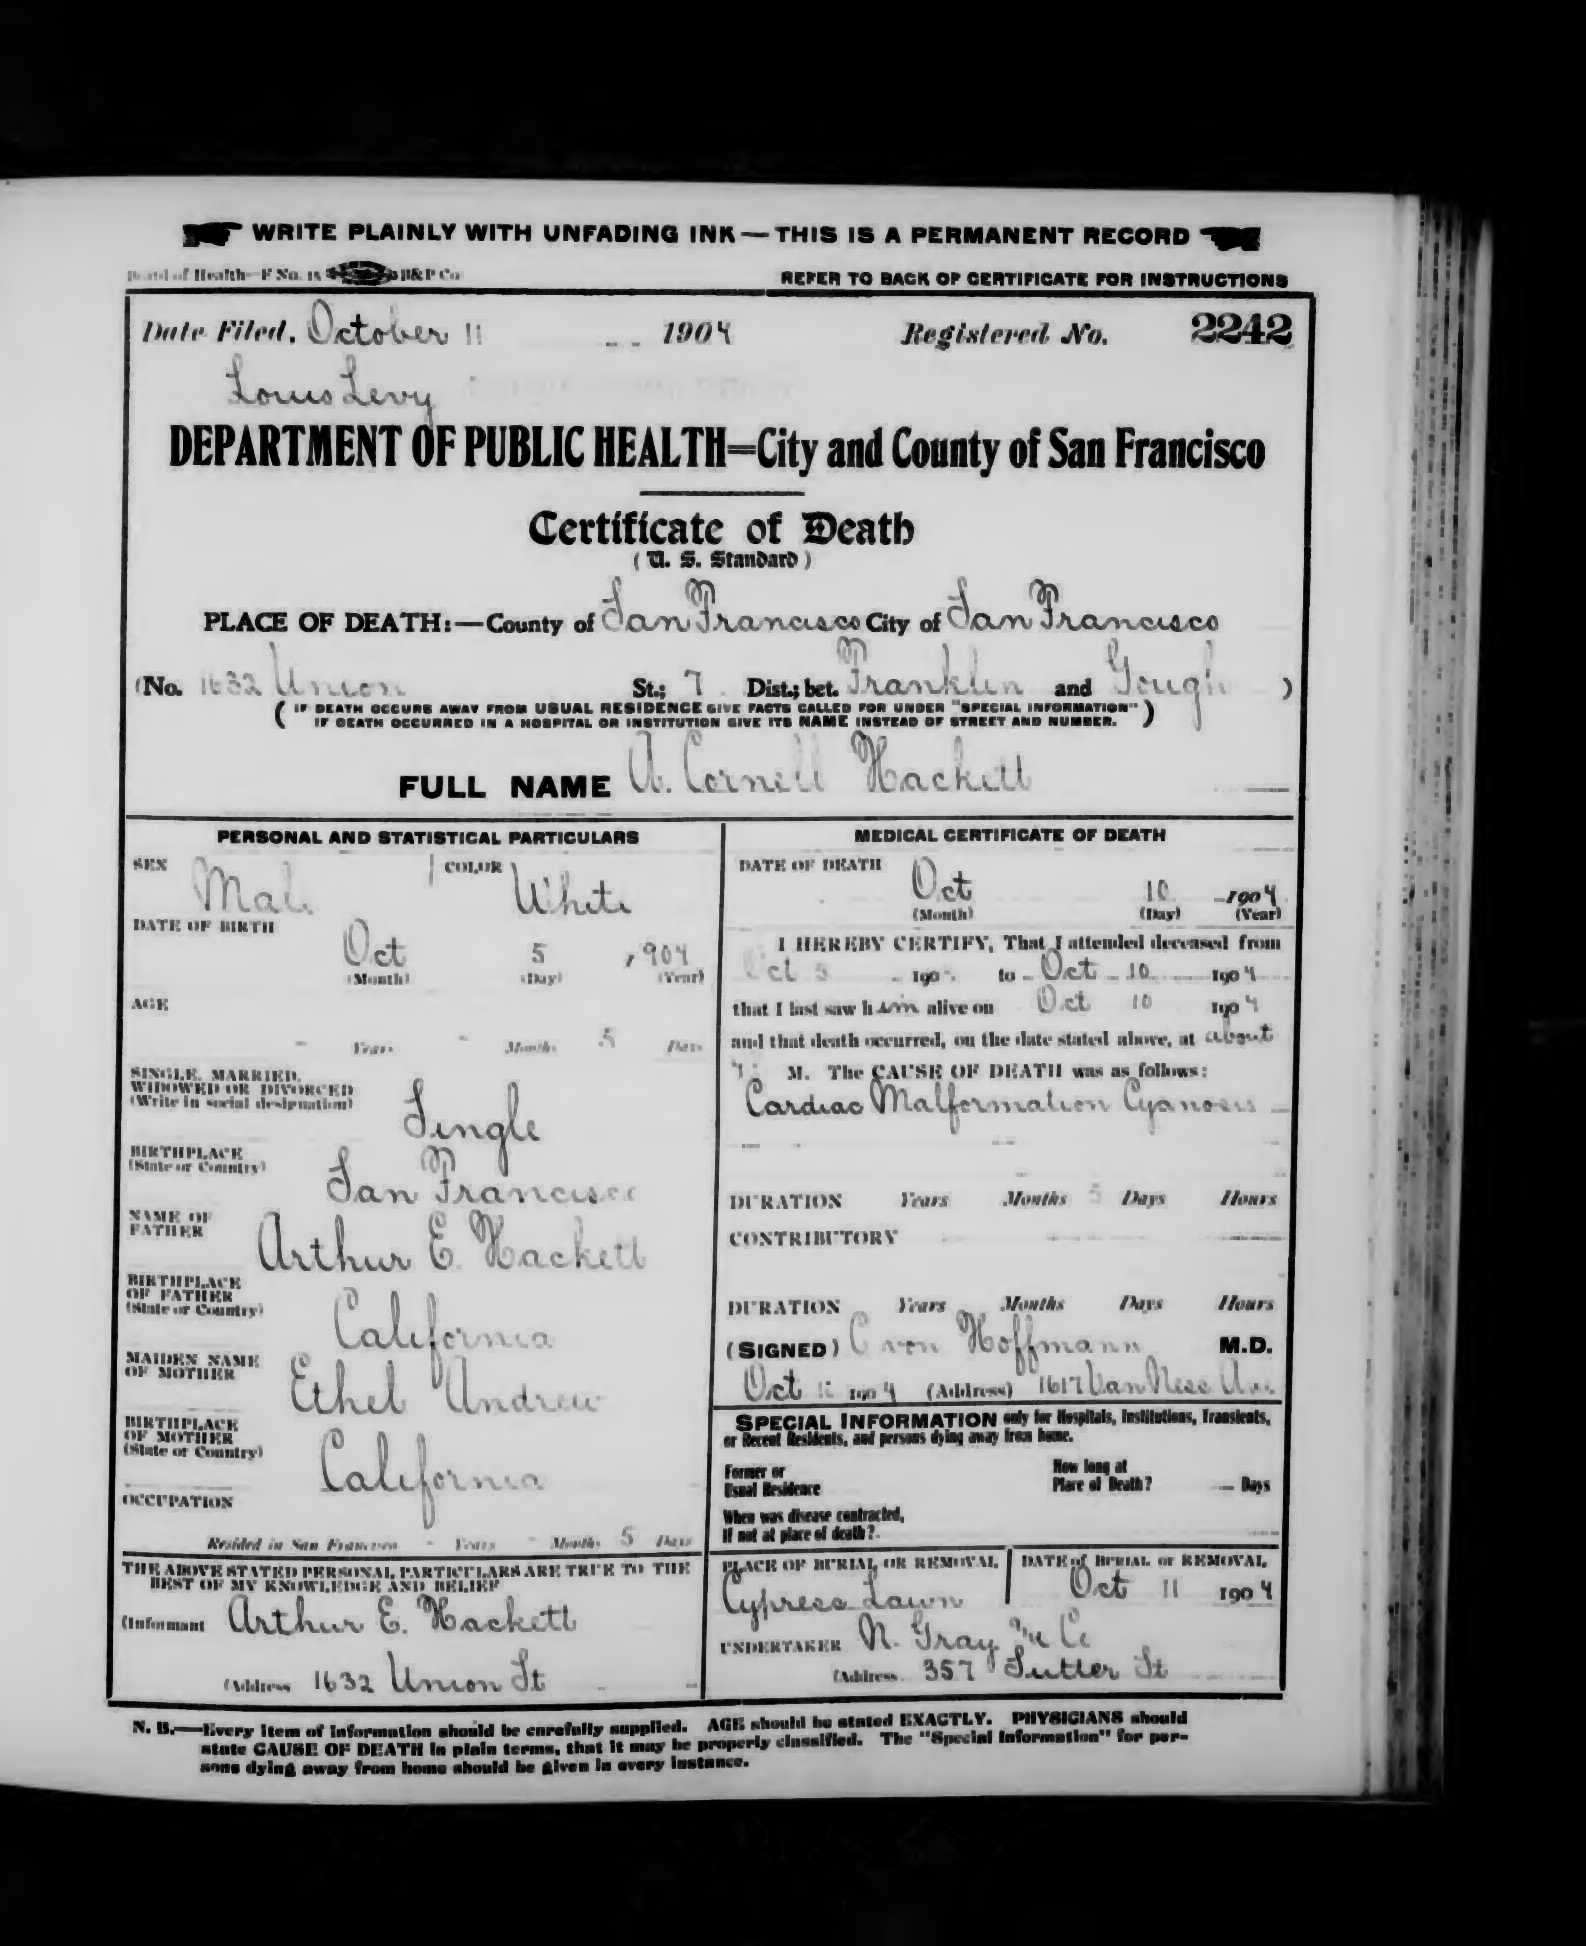 WRITE PLAINLY WITH UNFADING INK — THIS IS A PERMANENT RECORD
Board of Health—F No. 15 B&P Co
REFER TO BACK OF CERTIFICATE FOR INSTRUCTIONS
Date Filed, October 11 1904 Registered No. 2242
Louis Levy
DEPARTMENT OF PUBLIC HEALTH=City and County of San Francisco
Certificate of Death
(U. S. Standard)
PLACE OF DEATH:—County of San Francisco City of San Francisco
(No. 1632 Union St.; 7 Dist.; bet. Franklin and Gough )
( IF DEATH OCCURS AWAY FROM USUAL RESIDENCE GIVE FACTS CALLED FOR UNDER "SPECIAL INFORMATION"
IF DEATH OCCURRED IN A HOSPITAL OR INSTITUTION GIVE ITS NAME INSTEAD OF STREET AND NUMBER. )
FULL NAME A. Cornell Hackett
PERSONAL AND STATISTICAL PARTICULARS
SEX Male COLOR White
DATE OF BIRTH
Oct 5 , 904
(Month) (Day) (Year)
AGE
- Years - Months 5 Days
SINGLE, MARRIED,
WIDOWED OR DIVORCED
(Write in social designation)
Single
BIRTHPLACE
(State or Country)
San Francisco
NAME OF
FATHER
Arthur E. Hackett
BIRTHPLACE
OF FATHER
(State or Country)
California
MAIDEN NAME
OF MOTHER
Ethel Andrew
BIRTHPLACE
OF MOTHER
(State or Country)
California
OCCUPATION
Resided in San Francisco - Years - Months 5 Days
THE ABOVE STATED PERSONAL PARTICULARS ARE TRUE TO THE
BEST OF MY KNOWLEDGE AND BELIEF
(Informant Arthur E. Hackett
(Address 1632 Union St
MEDICAL CERTIFICATE OF DEATH
DATE OF DEATH
Oct 10 1904
(Month) (Day) (Year)
I HEREBY CERTIFY, That I attended deceased from
Oct 5 190 to Oct 10 1904
that I last saw him alive on Oct 10 1904
and that death occurred, on the date stated above, at about
M. The CAUSE OF DEATH was as follows:
Cardiac Malformation Cyanosis
DURATION Years Months 5 Days Hours
CONTRIBUTORY
DURATION Years Months Days Hours
(SIGNED) C von Hoffmann M.D.
Oct 1904 (Address) 1617 Van Ness Ave
SPECIAL INFORMATION only for Hospitals, Institutions, Transients,
or Recent Residents, and persons dying away from home.
Former or
Usual Residence
How long at
Place of Death? Days
When was disease contracted,
If not at place of death?
PLACE OF BURIAL OR REMOVAL
Cypress Lawn
DATE of BURIAL or REMOVAL
Oct 11 1904
UNDERTAKER N. Gray & Co
(Address 357 Sutter St
N. B.—Every item of information should be carefully supplied. AGE should be stated EXACTLY. PHYSICIANS should
state CAUSE OF DEATH in plain terms, that it may be properly classified. The "Special Information" for per-
sons dying away from home should be given in every instance.